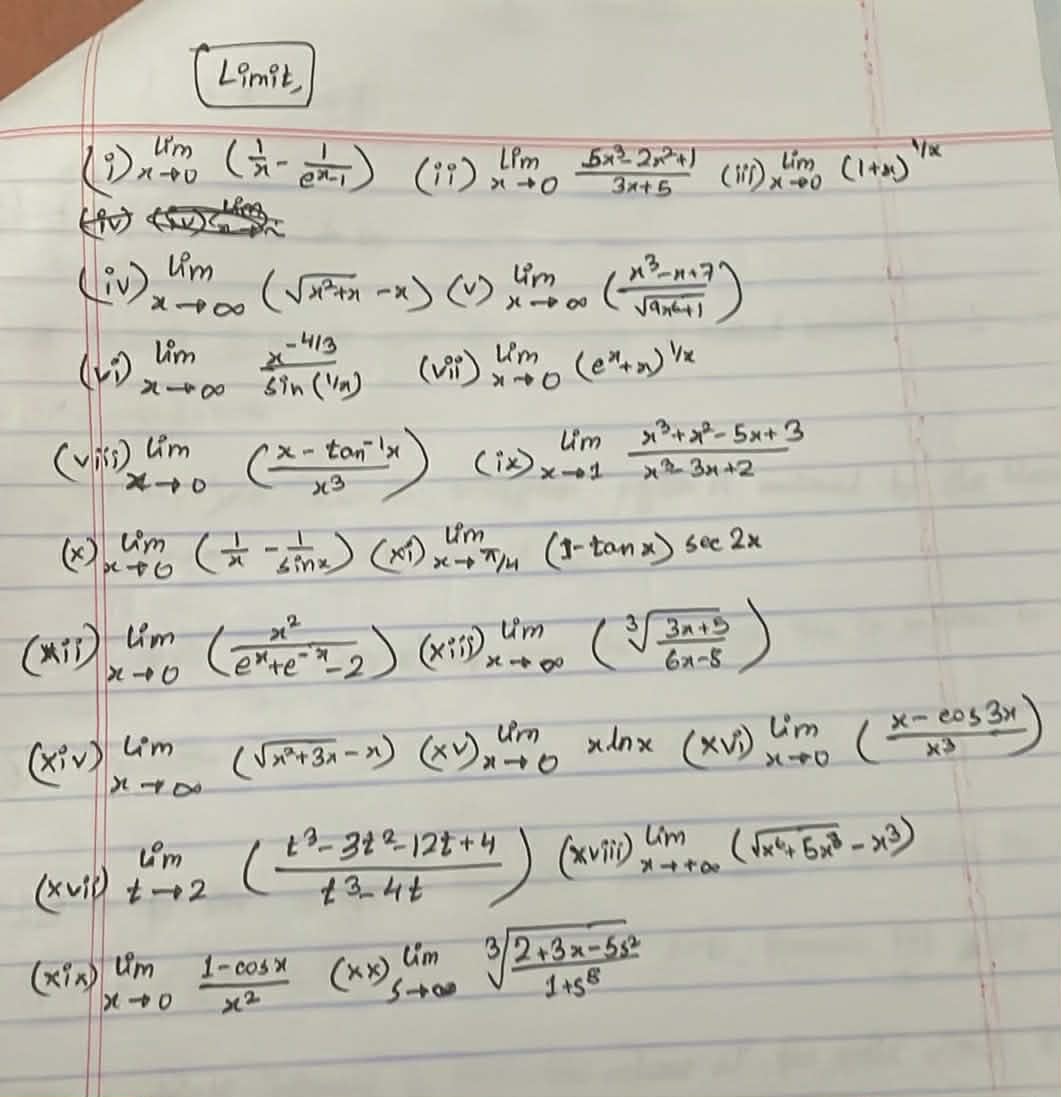 Limit,
(i) lim x→0 (1/x - 1/(e^x-1)) (ii) lim x→0 (5x³-2x²+1)/(3x+5) (iii) lim x→0 (1+x)^1/x
(iv) lim x→∞ (√(x²+x) - x) (v) lim x→∞ ((x³-x+7)/√(9x⁶+1))
(vi) lim x→∞ x^-4/3 / sin(1/x) (vii) lim x→0 (e^x+x)^1/x
(viii) lim x→0 ((x - tan⁻¹x)/x³) (ix) lim x→1 (x³+x²-5x+3)/(x³-3x+2)
(x) lim x→0 (1/x - 1/sinx) (xi) lim x→π/4 (1-tanx) sec 2x
(xii) lim x→0 (x²/(e^x+e^-x-2)) (xiii) lim x→∞ (∛((3x+5)/(6x-8)))
(xiv) lim x→∞ (√(x²+3x) - x) (xv) lim x→0 xlnx (xvi) lim x→0 ((x-cos3x)/x³)
(xvii) lim t→2 ((t³-3t²-12t+4)/(t³-4t)) (xviii) lim x→+∞ (√(x⁶+5x³) - x³)
(xix) lim x→0 (1-cosx)/x² (xx) lim s→∞ ∛((2+3x-5s²)/(1+s⁸))